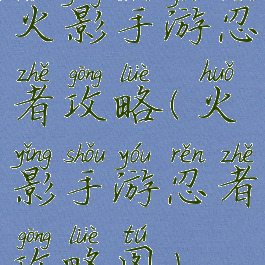 火影手游忍
zhě gōng lüè huǒ
者攻略(火
yǐng shǒu yóu rěn zhě
影手游忍者
gōng lüè tú
攻略图)